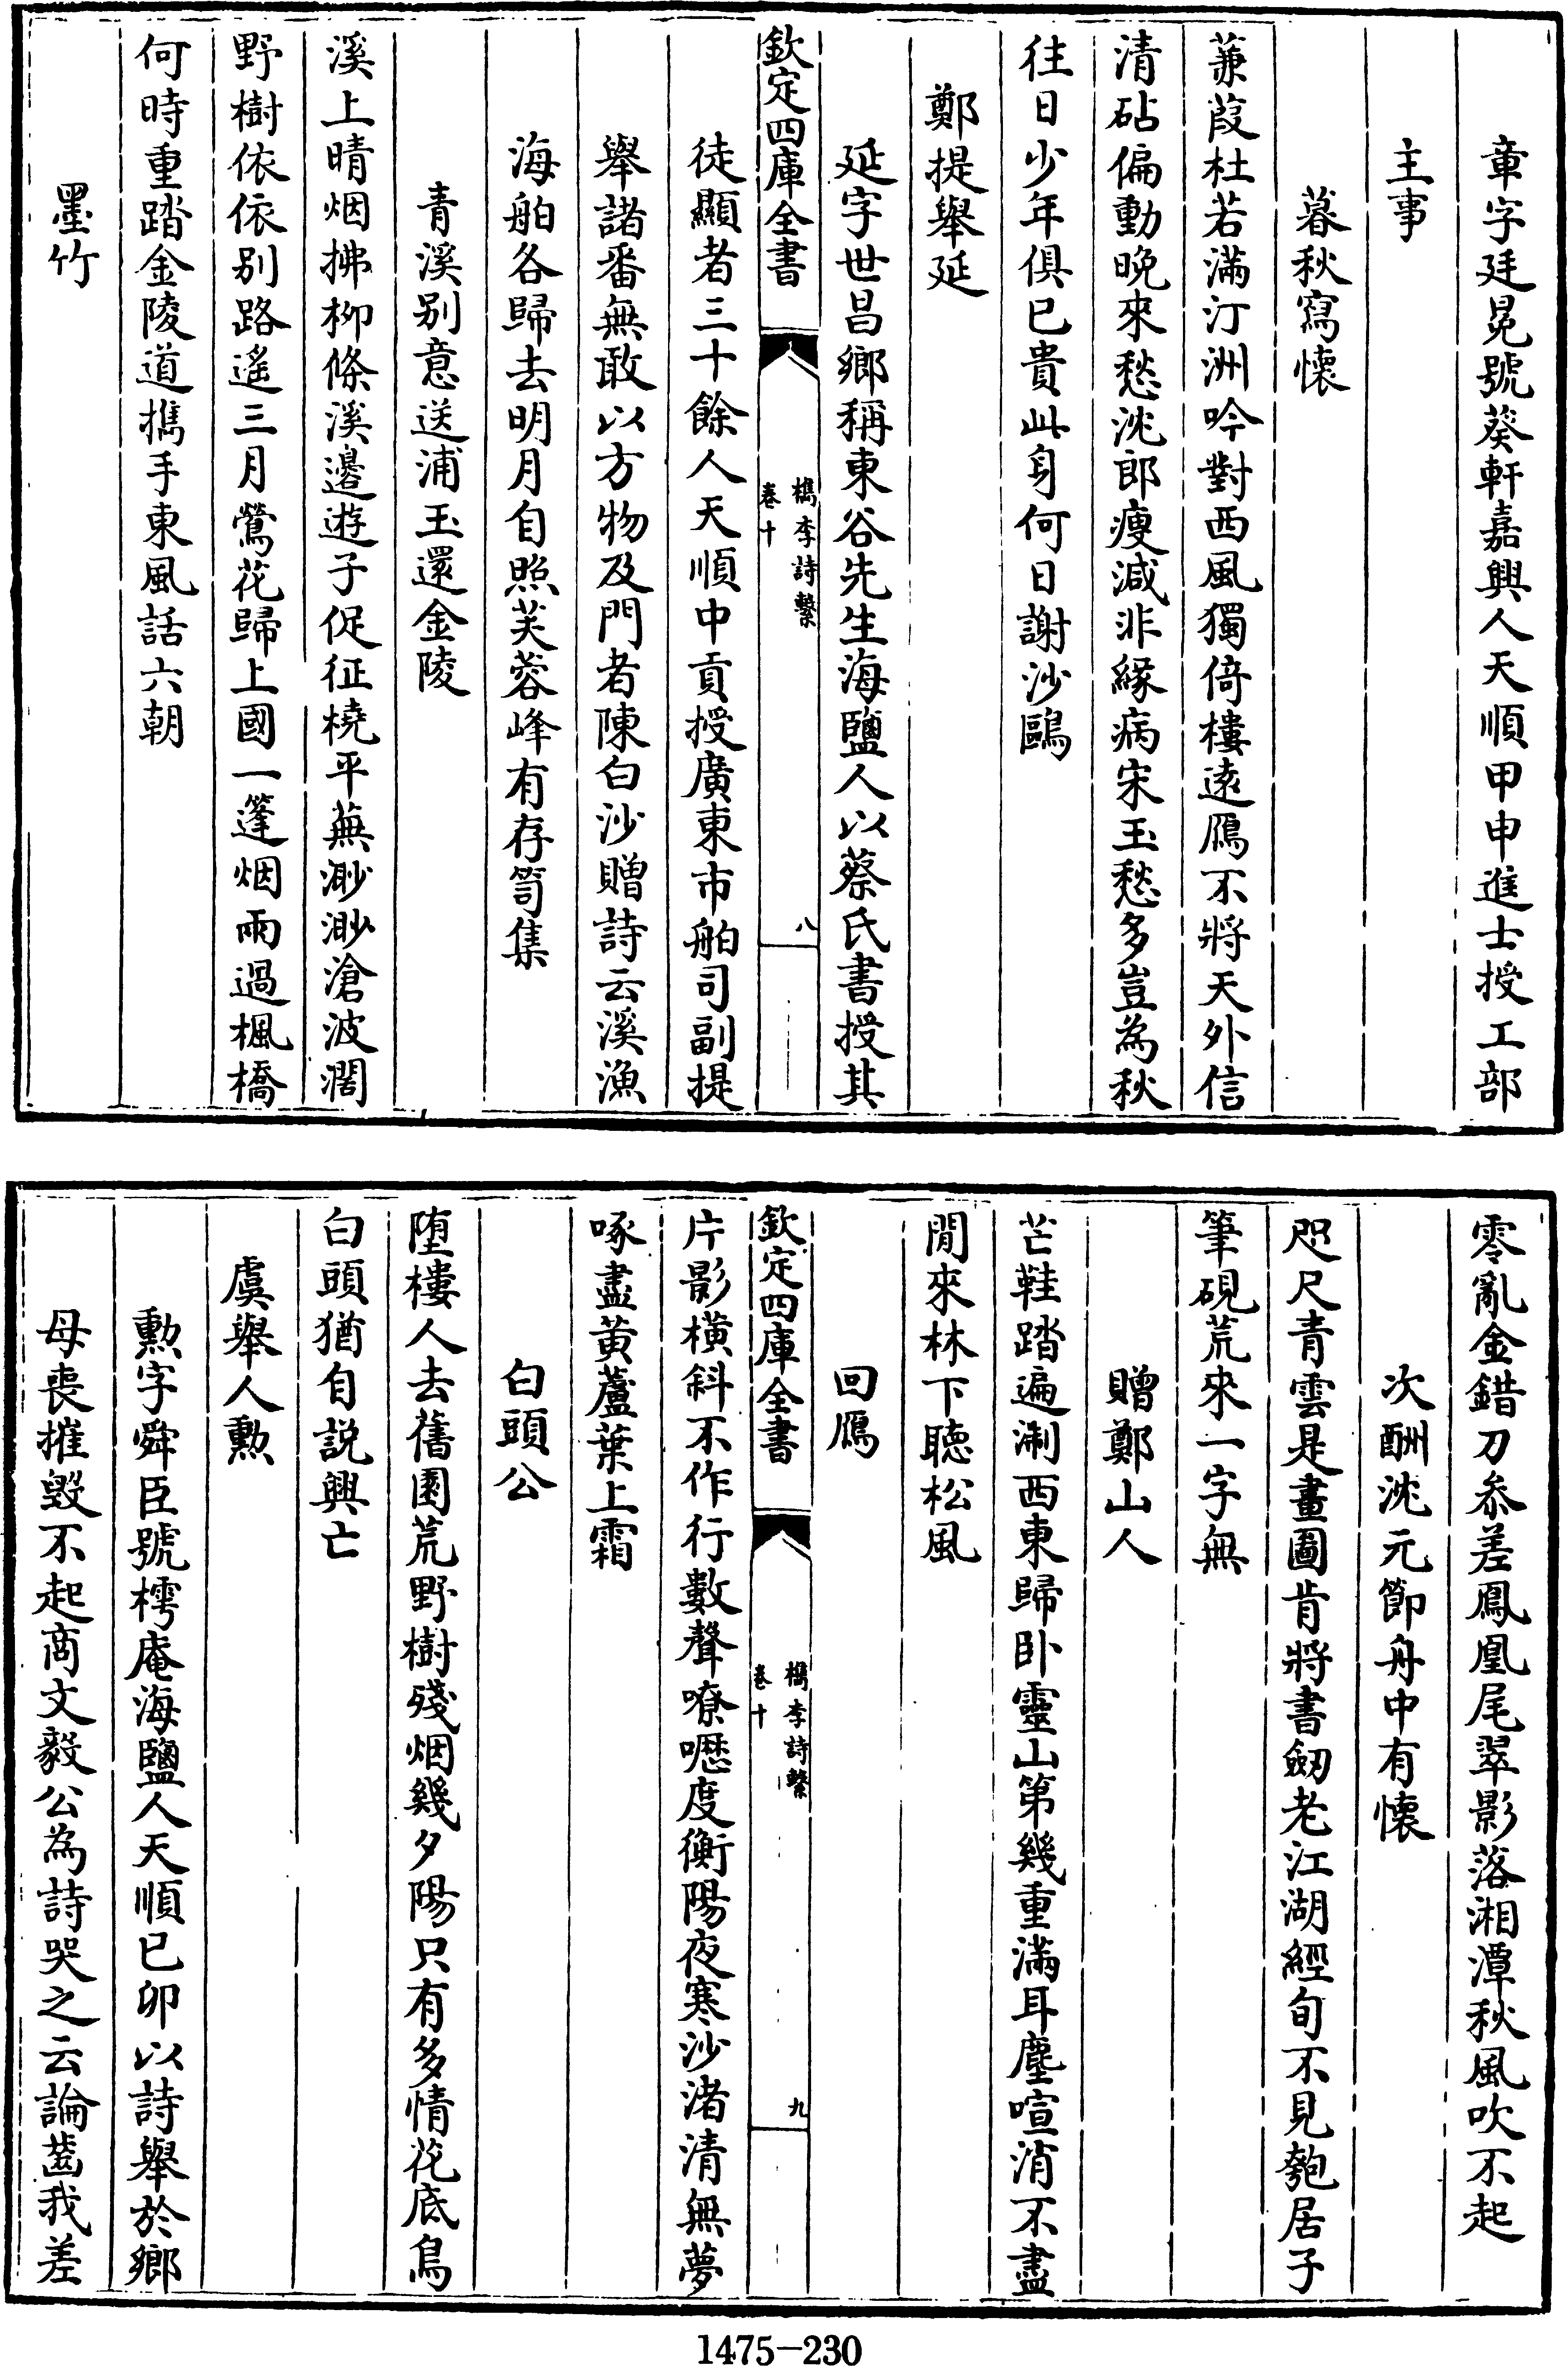 章字廷冕號葵軒嘉興人天順甲申進士授工部
主事
暮秋寫懷
蒹葭杜若滿汀洲吟對西風獨倚樓遠鴈不將天外信
清砧偏動晚來愁沈郎瘦減非緣病宋玉愁多豈為秋
往日少年俱已貴此身何日謝沙鷗
鄭提舉延
延字世昌鄉稱東谷先生海鹽人以蔡氏書授其
欽定四庫全書
檇李詩繫
卷十
八
徒顯者三十餘人天順中貢授廣東市舶司副提
舉諸番無敢以方物及門者陳白沙贈詩云溪漁
海舶各歸去明月自照芙蓉峰有存笥集
青溪别意送浦玉還金陵
溪上晴烟拂柳條溪邊遊子促征橈平蕪渺渺滄波濶
野樹依依别路遙三月鶯花歸上國一篷烟雨過楓橋
何時重踏金陵道擕手東風話六朝
墨竹
零亂金錯刀參差鳳凰尾翠影落湘潭秋風吹不起
次酬沈元節舟中有懷
咫尺青雲是畫圖肯將書劒老江湖經旬不見匏居子
筆硯荒來一字無
贈鄭山人
芒鞋踏遍淛西東歸卧靈山第幾重滿耳塵喧消不盡
閒來林下聴松風
回鴈
欽定四庫全書
檇李詩繫
卷十
九
片影橫斜不作行數聲嘹嚦度衡陽夜寒沙渚清無夢
啄盡黄蘆葉上霜
白頭公
堕樓人去舊園荒野樹殘烟幾夕陽只有多情花底鳥
白頭猶自説興亡
虞舉人勲
勲字舜臣號樗庵海鹽人天順已卯以詩舉於鄉
母喪摧毁不起商文毅公為詩哭之云論齒我差
1475-230